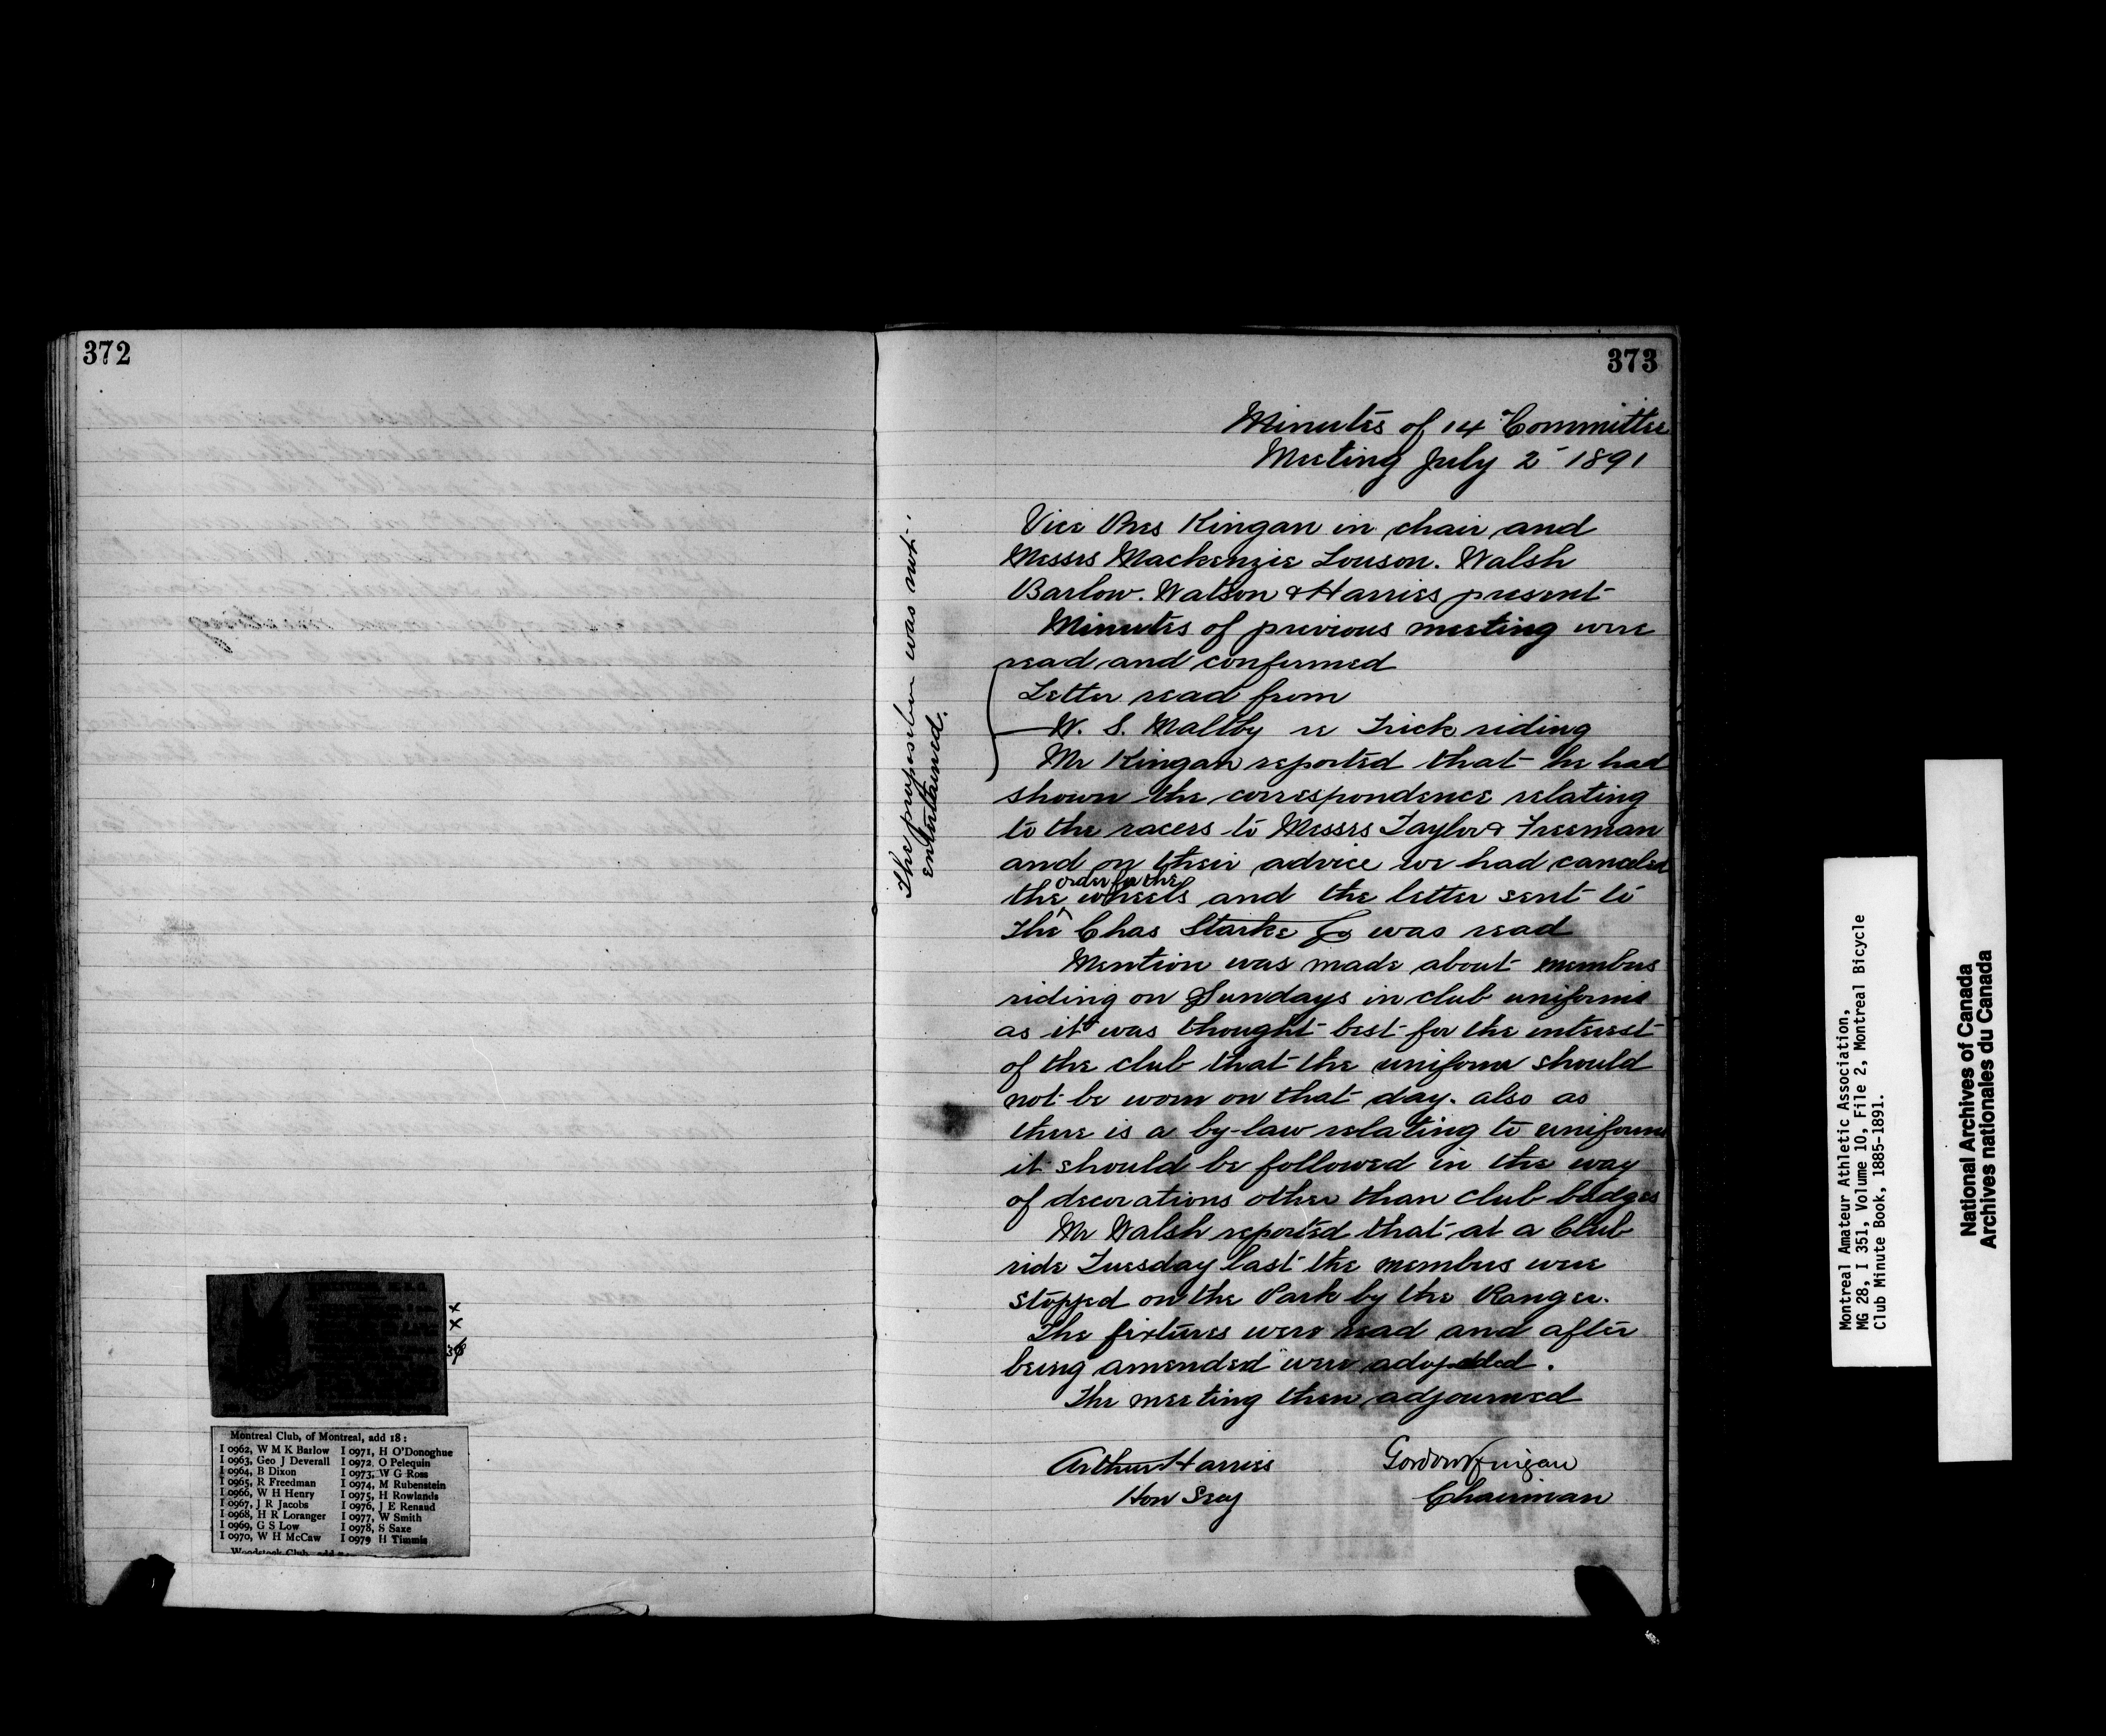 372
Montreal Club, of Montreal, add 18:
I 0962, W M K Barlow
I 0963, Geo J Deverall
I 0964, B Dixon
I 0965, R Freedman
I 0966, W H Henry
I 0967, J R Jacobs
I 0968, H R Loranger
I 0969, G S Low
I 0970, W H McCaw
I 0971, H O'Donoghue
I 0972, O Pelequin
I 0973, W G Ross
I 0974, M Rubenstein
I 0975, H Rowlands
I 0976, J E Renaud
I 0977, W Smith
I 0978, S Saxe
I 0979 H Timmis
Woodstock Club, add
373
Minutes of 14 Committee
Meeting July 2 1891
Vice Pres Kingan in chair and
Messrs Mackenzie Louson. Walsh
Barlow. Watson & Harries present
Minutes of previous meeting were
read and confirmed
Letter read from
W. S. Maltby re Trick riding
The proposition was not
entertained.
Mr Kingan reported that he had
shown the correspondence relating
to the racers to Messrs Taylor & Freeman
and on their advice we had canceled
the order for the wheels and the letter sent to
The Chas Starke Co was read
Mention was made about members
riding on Sundays in club uniforms
as it was thought best for the interest
of the club that the uniform should
not be worn on that day. also as
there is a by-law relating to uniforms
it should be followed in the way
of decorations other than club badges
Mr Walsh reported that at a Club
ride Tuesday last the members were
stopped on the Park by the Ranger.
The fixtures were read and after
being amended were adopted.
The meeting then adjourned
Arthur Harries
Hon Secy
Gordon Kingan
Chairman
Montreal Amateur Athletic Association,
MG 28, I 351, Volume 10, File 2, Montreal Bicycle
Club Minute Book, 1885-1891.
National Archives of Canada
Archives nationales du Canada